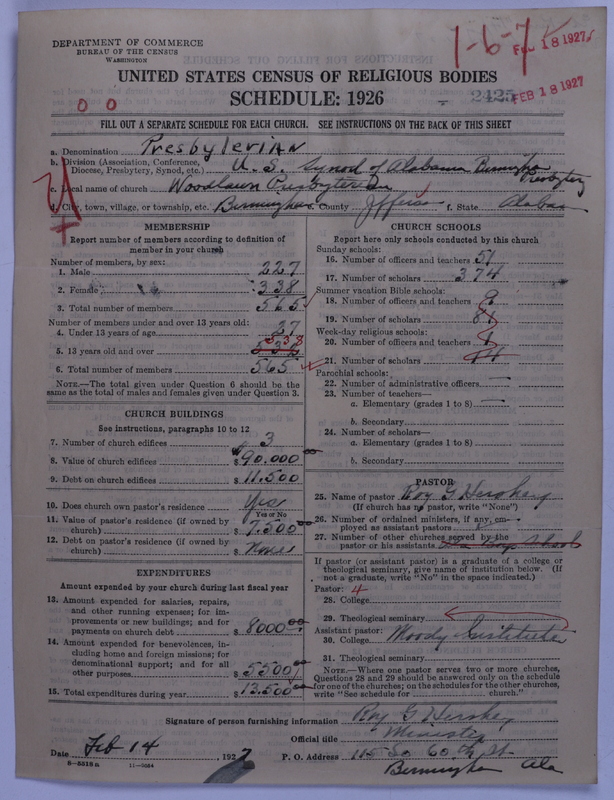 DEPARTMENT OF COMMERCE
BUREAU OF THE CENSUS
WASHINGTON
1-6-7 FEB 18 1927
UNITED STATES CENSUS OF RELIGIOUS BODIES
SCHEDULE: 1926
2425 FEB 18 1927
0 0
FILL OUT A SEPARATE SCHEDULE FOR EACH CHURCH. SEE INSTRUCTIONS ON THE BACK OF THIS SHEET
a. Denomination Presbyterian
b. Division (Association, Conference, Diocese, Presbytery, Synod, etc.) U.S. Synod of Alabama Birmingham Presbytery
c. Local name of church Woodlawn Presbyterian
d. City, town, village, or township, etc. Birmingham e. County Jefferson f. State Alabama
MEMBERSHIP
Report number of members according to definition of
member in your church
Number of members, by sex:
1. Male 227
2. Female 338
3. Total number of members 565
Number of members under and over 13 years old:
4. Under 13 years of age 27
5. 13 years old and over 538
6. Total number of members 565
NOTE.—The total given under Question 6 should be the
same as the total of males and females given under Question 3.
CHURCH BUILDINGS
See instructions, paragraphs 10 to 12
7. Number of church edifices 3
8. Value of church edifices $ 90,000 00
9. Debt on church edifices $ 11,500
10. Does church own pastor's residence? Yes
Yes or No
11. Value of pastor's residence (if owned by
church) $ 7,500 00
12. Debt on pastor's residence (if owned by
church) $ None
EXPENDITURES
Amount expended by your church during last fiscal year
13. Amount expended for salaries, repairs,
and other running expenses; for im-
provements or new buildings; and for
payments on church debt $ 8000 00
14. Amount expended for benevolences, in-
cluding home and foreign missions; for
denominational support; and for all
other purposes $ 5500 00
15. Total expenditures during year $ 12,500 00
CHURCH SCHOOLS
Report here only schools conducted by this church
Sunday schools:
16. Number of officers and teachers 51
17. Number of scholars 374
Summer vacation Bible schools:
18. Number of officers and teachers
19. Number of scholars
Week-day religious schools:
20. Number of officers and teachers
21. Number of scholars
Parochial schools:
22. Number of administrative officers
23. Number of teachers—
a. Elementary (grades 1 to 8)
b. Secondary
24. Number of scholars—
a. Elementary (grades 1 to 8)
b. Secondary
PASTOR
25. Name of pastor Roy G Hershey
(If church has no pastor, write "None")
26. Number of ordained ministers, if any, em-
ployed as assistant pastors
27. Number of other churches served by the
pastor or his assistants
If pastor (or assistant pastor) is a graduate of a college or
theological seminary, give name of institution below. (If
not a graduate, write "No" in the space indicated.)
Pastor: 4
28. College
29. Theological seminary
Assistant pastor:
30. College Moody Institute
31. Theological seminary
NOTE.—Where one pastor serves two or more churches,
Questions 28 and 29 should be answered only on the schedule
for one of the churches; on the schedules for the other churches,
write "See schedule for church."
Signature of person furnishing information Roy G Hershey
Official title Minister
Date Feb 14, 1927 P. O. Address 115 So 60th St
Birmingham Ala
8-5018a 11-9664